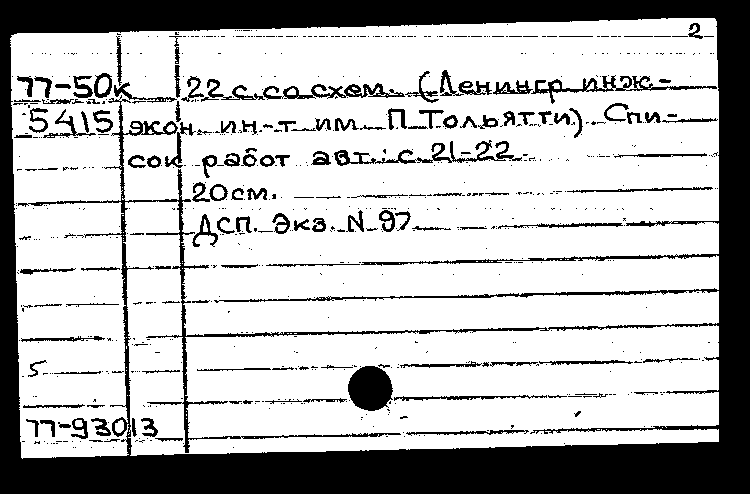 2
77-50к 22 с. со схем. (Ленингр. инж.-
5415 экон. ин-т им. П. Тольятти). Спи-
сок работ авт.: с. 21-22.
20 см.
ДСП. Экз. N 97
5
77-93013